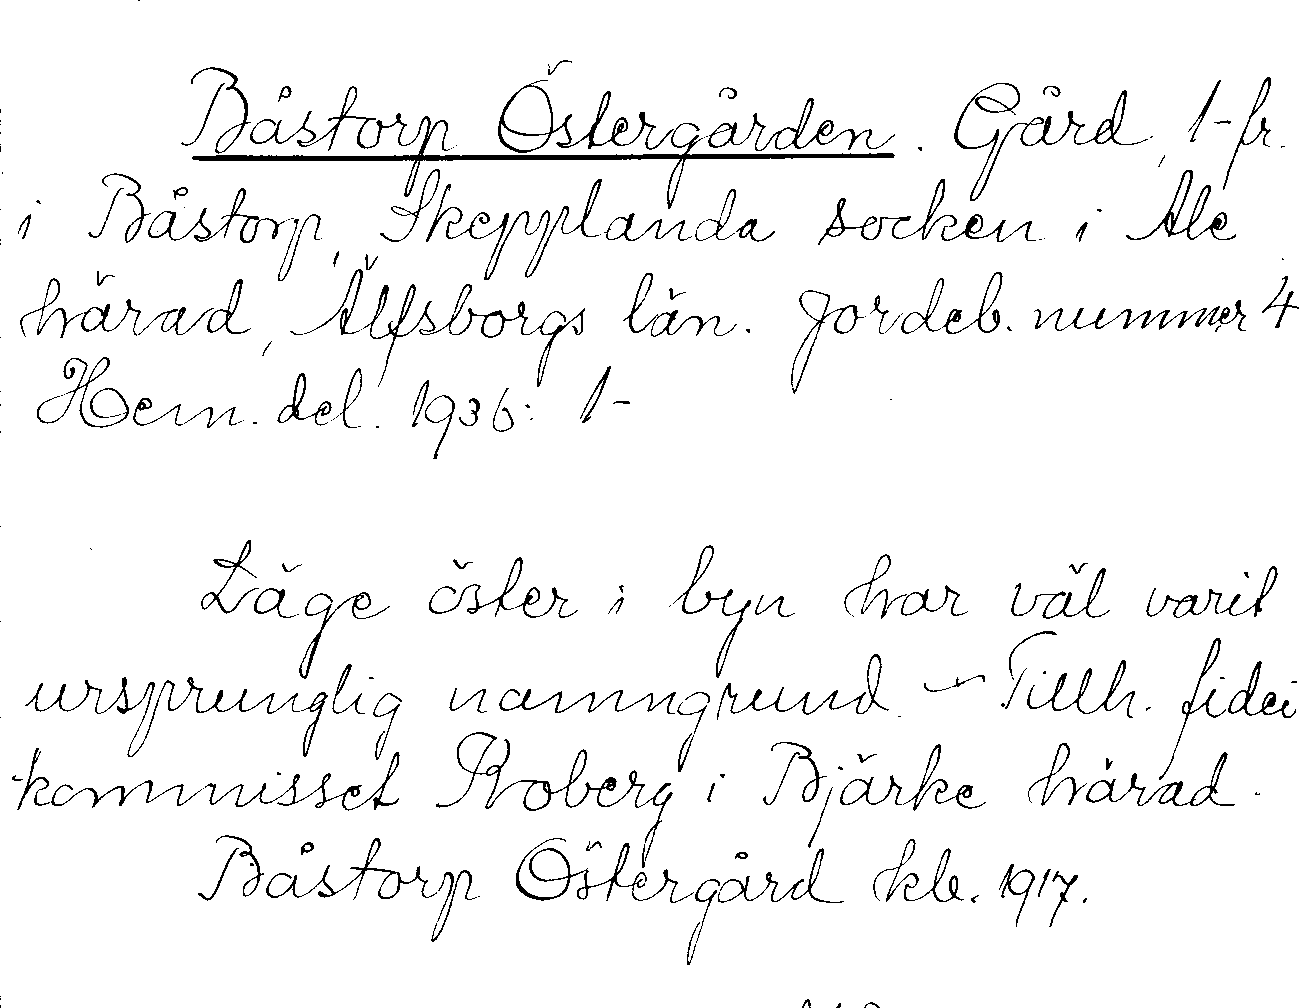 Båstorp Östergården. Gård, 1-fr.
i Båstorp, Skepplanda socken i Ale
härad, Älfsborgs län. Jordeb. nummer 4
Hem. del. 1936: 1-
Läge öster i byn har väl varit
ursprunglig namngrund. - Tillh. fidei
kommisset Koberg i Bjärke härad.
Båstorp Östergård kle. 1917.